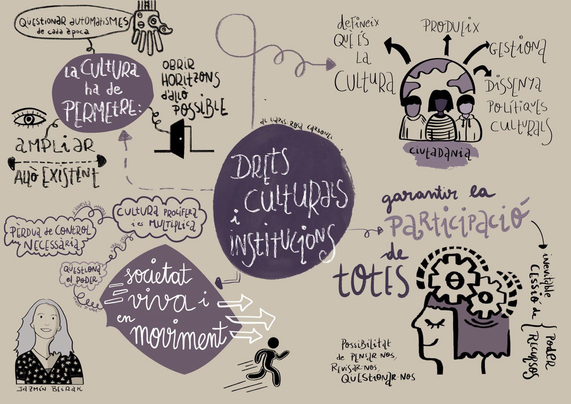 QÜESTIONAR AUTOMATISMES
de cada època
LA CULTURA
ha de
PERMETRE:
OBRIR
HORITZONS
d'allò
POSSIBLE
AMPLIAR
ALLÒ EXISTENT
DRETS
CULTURALS
i
INSTITUCIONS
defineix
QUÈ ÉS
LA
CULTURA
PRODUEIX
GESTIONA
DISSENYA
POLÍTIQUES
CULTURALS
CIUTADANIA
garantir la
PARTICIPACIÓ
de
TOTES
inevitable
CESSIÓ de
PODER
RECURSOS
Possibilitat
de PENSAR-NOS,
REVISAR-NOS,
QÜESTIONAR-NOS
CULTURA PROLIFERA
i es MULTIPLICA
PÈRDUA de CONTROL
NECESSÀRIA
QÜESTIONA
EL PODER
societat
viva i
en moviment
JAZMÍN BEIRAK